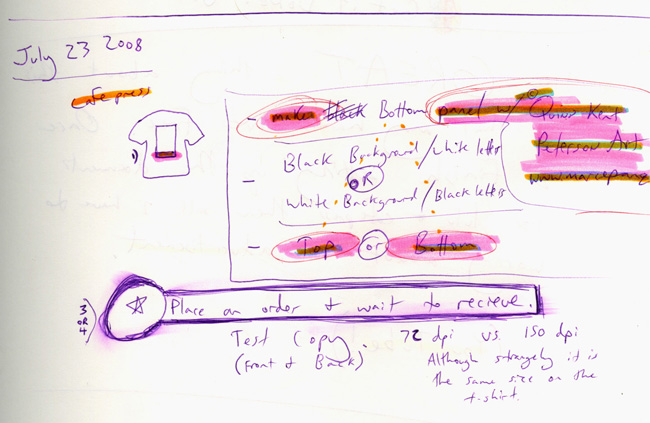 July 23 2008
cafe press
- black Bottom panel w/ ©
1)
Peterson Art
- Black Background / White letters
OR
White Background / Black letters
- Top or Bottom
3 OR 4)
Place an order + wait to recieve.
Test Copy. 72 dpi vs. 150 dpi
(Front + Back) Although strangely it is
the same size on the
t-shirt.